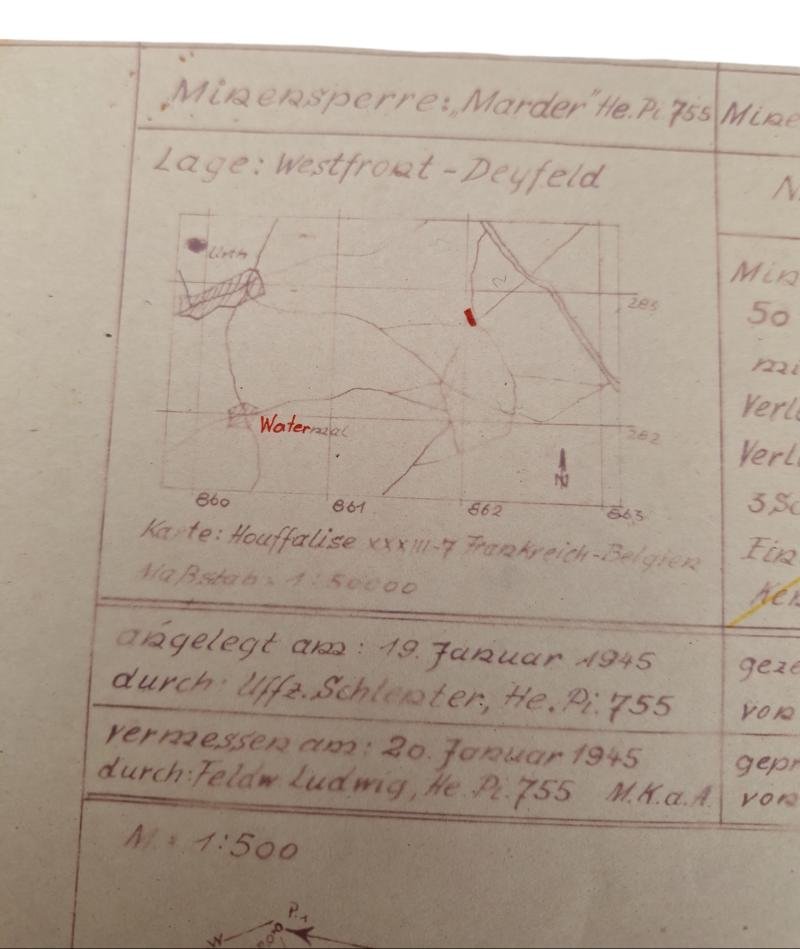 Minensperre: „Marder" He.Pi.755
Lage: Westfront - Deyfeld
Urth
N
283
Watermal
282
N
860 861 862 863
Karte: Houffalise XXXIII-7 Frankreich-Belgien
Maßstab = 1:50000
angelegt am: 19. Januar 1945
durch: Uffz. Schlenter, He.Pi.755
vermessen am: 20. Januar 1945
durch: Feldw Ludwig, He.Pi.755 M.K.a.A.
M = 1:500
P.1
W
Mine
N
Min
50
mi
Verl
Verl
3 Sc
Ein
Ken
geze
von
gepr
von